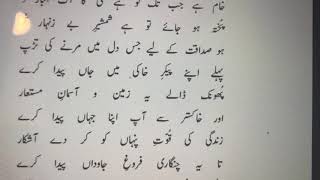 خام ہے جب تک تو ہے
پختہ ہو جائے تو ہے شمشیرِ بے زنہار
ہو صداقت کے لیے جس دل میں مرنے کی تڑپ
پہلے اپنے پیکرِ خاکی میں جاں پیدا کرے
پھونک ڈالے یہ زمین و آسمانِ مستعار
اور خاکستر سے آپ اپنا جہاں پیدا کرے
زندگی کی قوتِ پنہاں کو کر دے آشکار
تا یہ چنگاری فروغِ جاوداں پیدا کرے